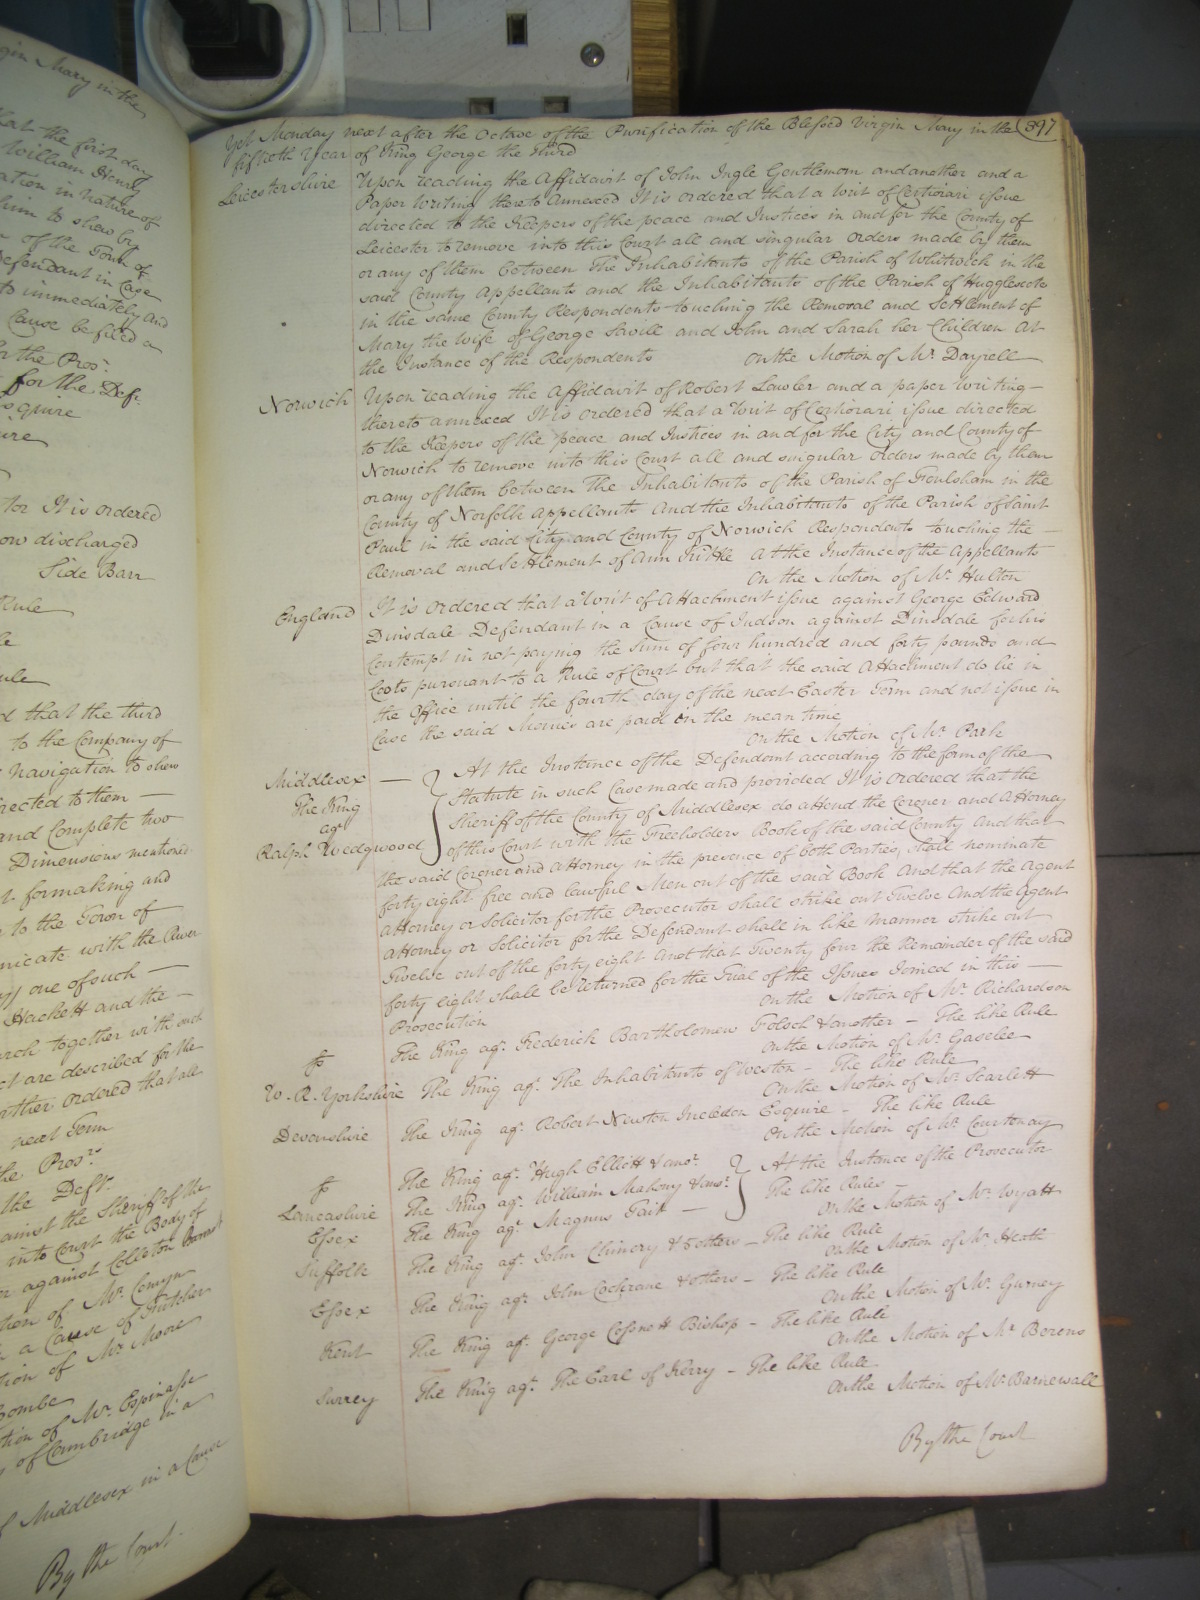 gin Mary in the
hat the first day
William Henry
ation in nature of
him to shew by
of the Town of
Defendant in Case
to immediately and
Cause be filed a
or the Pros.
for the Def.
Esquire
uire
tor It is ordered
ow discharged
Side Barr
Rule
le
ule
d that the third
to the Company of
Navigation to shew
irected to them
and Complete two
Dimensions mentioned
t for making and
to the Town of
nicate with the River
one of such
Hackett and the
arch together with such
ct are described for the
urther ordered that all
next Term
the Pros.rs
the Deft.
ainst the Sheriff of the
into Court the Body of
r against Colleton
tion of Mr. Comyn
a Cause of Fletcher
tion of Mr. Moore
combe
tion of Mr. Espinasse
of Cambridge in a
f Middlesex in a Cause
By the Court
397
Yet Monday next after the Octave of the Purification of the Blessed Virgin Mary in the
fiftieth Year of King George the Third
Leicestershire Upon reading the Affidavit of John Ingle Gentleman and another and a
Paper Writing thereto Annexed It is ordered that a Writ of Certiorari issue
directed to the Keepers of the peace and Justices in and for the County of
Leicester to remove into this Court all and singular orders made by them
or any of them between The Inhabitants of the Parish of Whitwick in the
said County Appellants and the Inhabitants of the Parish of Hugglescote
in the same County Respondents touching the Removal and Settlement of
Mary the Wife of George Savill and John and Sarah her Children At
the Instance of the Respondents On the Motion of Mr. Dayrell
Norwich Upon reading the Affidavit of Robert Lawler and a paper writing
thereto annexed It is ordered that a Writ of Certiorari issue directed
to the Keepers of the peace and Justices in and for the City and County of
Norwich to remove into this Court all and singular orders made by them
or any of them between The Inhabitants of the Parish of Foulsham in the
County of Norfolk Appellants And the Inhabitants of the Parish of Saint
Paul in the said City and County of Norwich Respondents touching the
Removal and Settlement of Ann Kittle At the Instance of the Appellants
On the Motion of Mr. Hulton
England It is ordered that a Writ of Attachment issue against George Edward
Dinsdale Defendant in a Cause of Judson against Dinsdale for his
Contempt in not paying the sum of four hundred and forty pounds and
Costs pursuant to a Rule of Court but that the said Attachment do lie in
the Office until the fourth day of the next Easter Term and not issue in
Case the said Monies are paid in the mean time
On the Motion of Mr. Park
Middlesex At the Instance of the Defendant according to the form of the
The King Statute in such Case made and provided It is ordered that the
agt. Sheriff of the County of Middlesex do attend the Coroner and Attorney
Ralph Wedgwood of this Court with the Freeholders Book of the said County And that
the said Coroner and Attorney in the presence of both Parties, shall nominate
forty eight free and lawful Men out of the said Book And that the Agent
Attorney or Solicitor for the Prosecutor shall strike out Twelve And the Agent
Attorney or Solicitor for the Defendant shall in like Manner strike out
Twelve out of the forty eight And that Twenty four the Remainder of the said
forty eight shall be returned for the Trial of the Issues Joined in this
Prosecution On the Motion of Mr. Richardson
The King agt. Frederick Bartholomew Folsch & another – The like Rule
On the Motion of Mr. Gaselee
W. R. Yorkshire The King agt. The Inhabitants of Weston – The like Rule
On the Motion of Mr. Scarlett
Devonshire The King agt. Robert Newton Incledon Esquire – The like Rule
On the Motion of Mr. Courtenay
The King agt. Hugh Elliott & anor. At the Instance of the Prosecutor
Lancashire The King agt. William Mahony & anor. The like Rules
Essex The King agt. Magnus Tait – On the Motion of Mr. Wyatt
Suffolk The King agt. John Chinery & 5 others – The like Rule
On the Motion of Mr. Heath
Essex The King agt. John Cochrane & others – The like Rule
On the Motion of Mr. Gurney
Kent The King agt. George Cossnett Bishop – The like Rule
On the Motion of Mr. Berens
Surrey The King agt. The Earl of Kerry – The like Rule
On the Motion of Mr. Barnewall
By the Court